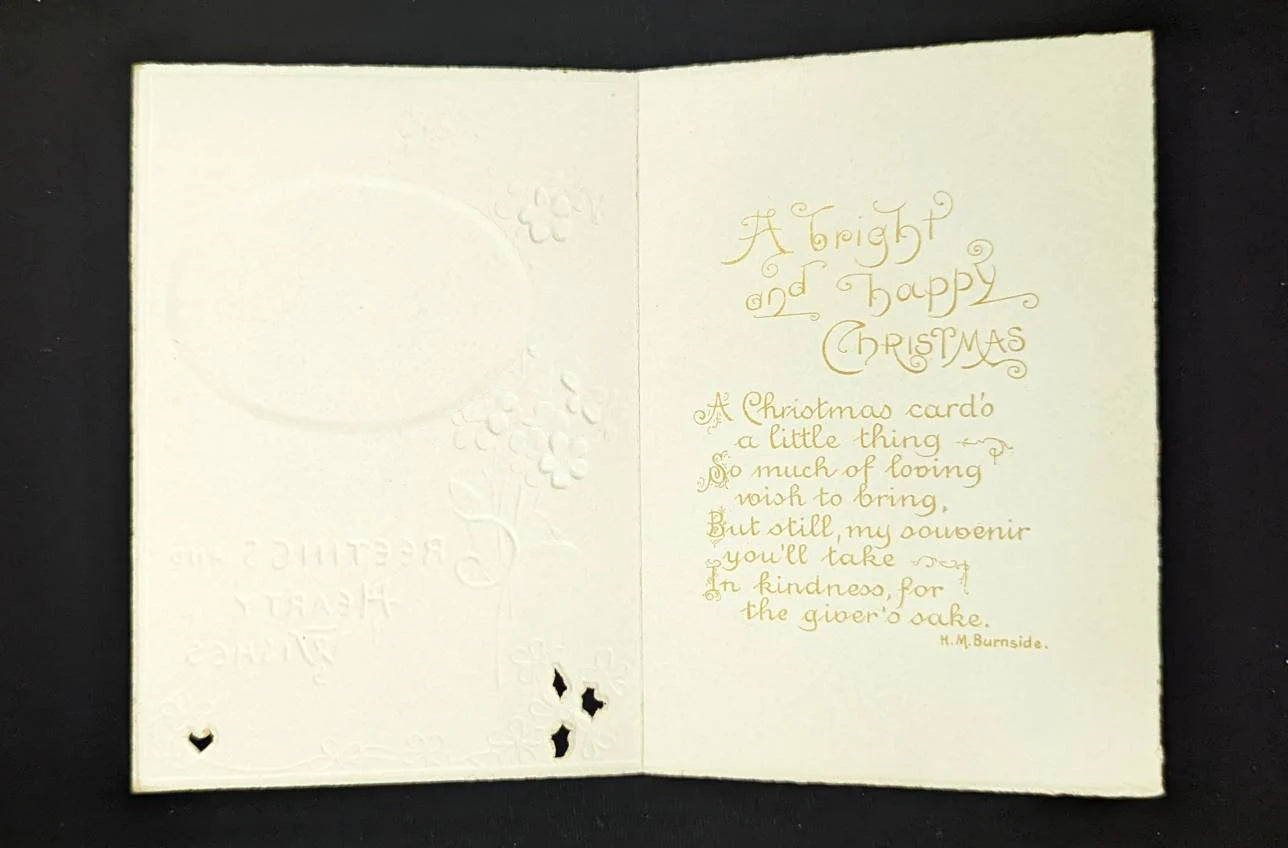 GREETINGS AND
HEARTY
WISHES
A bright
and happy
CHRISTMAS
A Christmas card's
a little thing
So much of loving
wish to bring,
But still, my souvenir
you'll take
In kindness, for
the giver's sake.
H.M.Burnside.